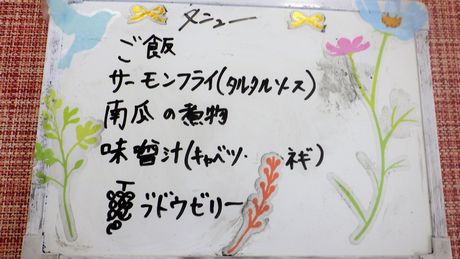 メニュー
ご飯
サーモンフライ(タルタルソース)
南瓜の煮物
味噌汁(キャベツ・ネギ)
ブドウゼリー